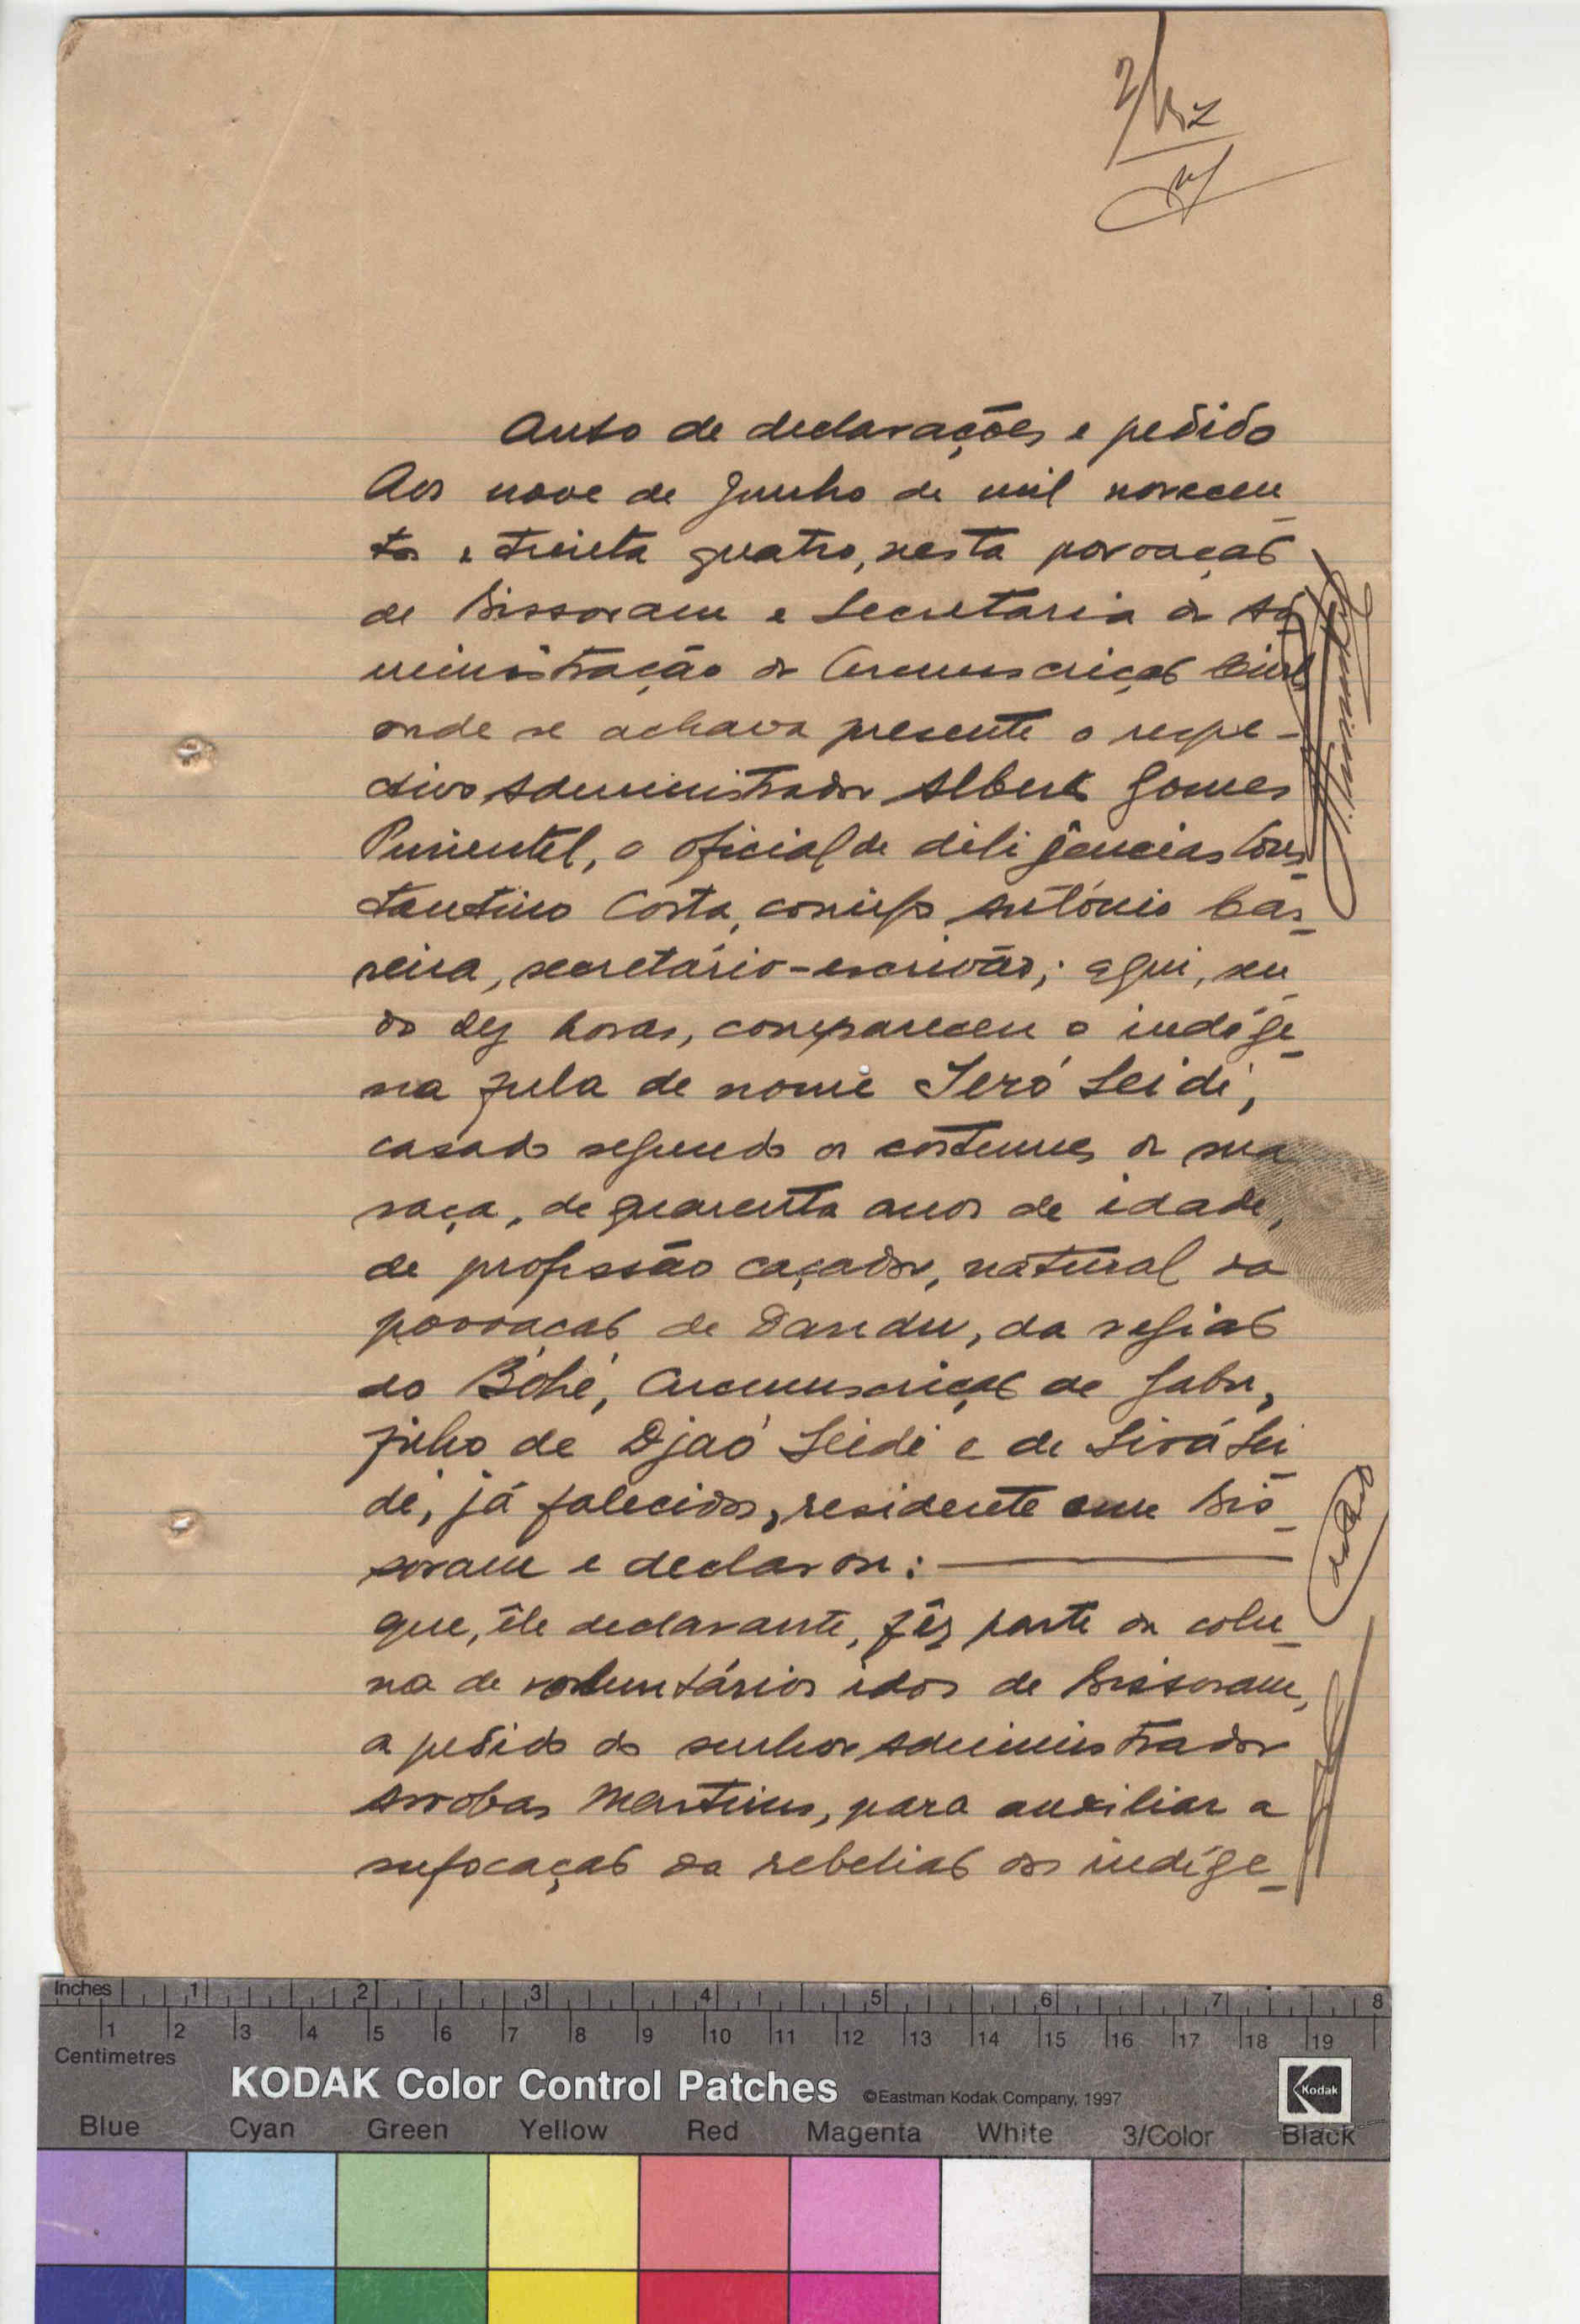 Auto de declarações e pedido
Aos nove de Junho de mil novecen-
tos e trinta quatro, nesta povoação
de Bissoram e Secretaria da Ad-
ministração da Circunscrição Civil,
onde se achava presente o respe-
ctivo Administrador Alberto Gomes
Pimentel, o oficial de diligências Cons-
tantino Costa, comigo António
secretário-escrivão; aqui, sen-
do dez horas, compareceu o indíge-
na fula de nome Seidi,
casado segundo os costumes da sua
raça, de quarenta anos de idade,
de profissão caçador, natural da
povoação de Dandu, da região
do Bóhé, Circunscrição de Gabu,
filho de Djaó Seidi e de Sirá Sei-
di, já falecidos, residente em Bis-
soram e declarou:
que, êle declarante, fêz parte da colu-
na de voluntários idos de Bissoram,
a pedido do senhor Administrador
Arrobas Martins, para auxiliar a
sufocação da rebelião dos indíge-
Inches 1 2 3 4 5 6 7 8
1 2 3 4 5 6 7 8 9 10 11 12 13 14 15 16 17 18 19
Centimetres
KODAK Color Control Patches ©Eastman Kodak Company, 1997 Kodak
Blue Cyan Green Yellow Red Magenta White 3/Color Black